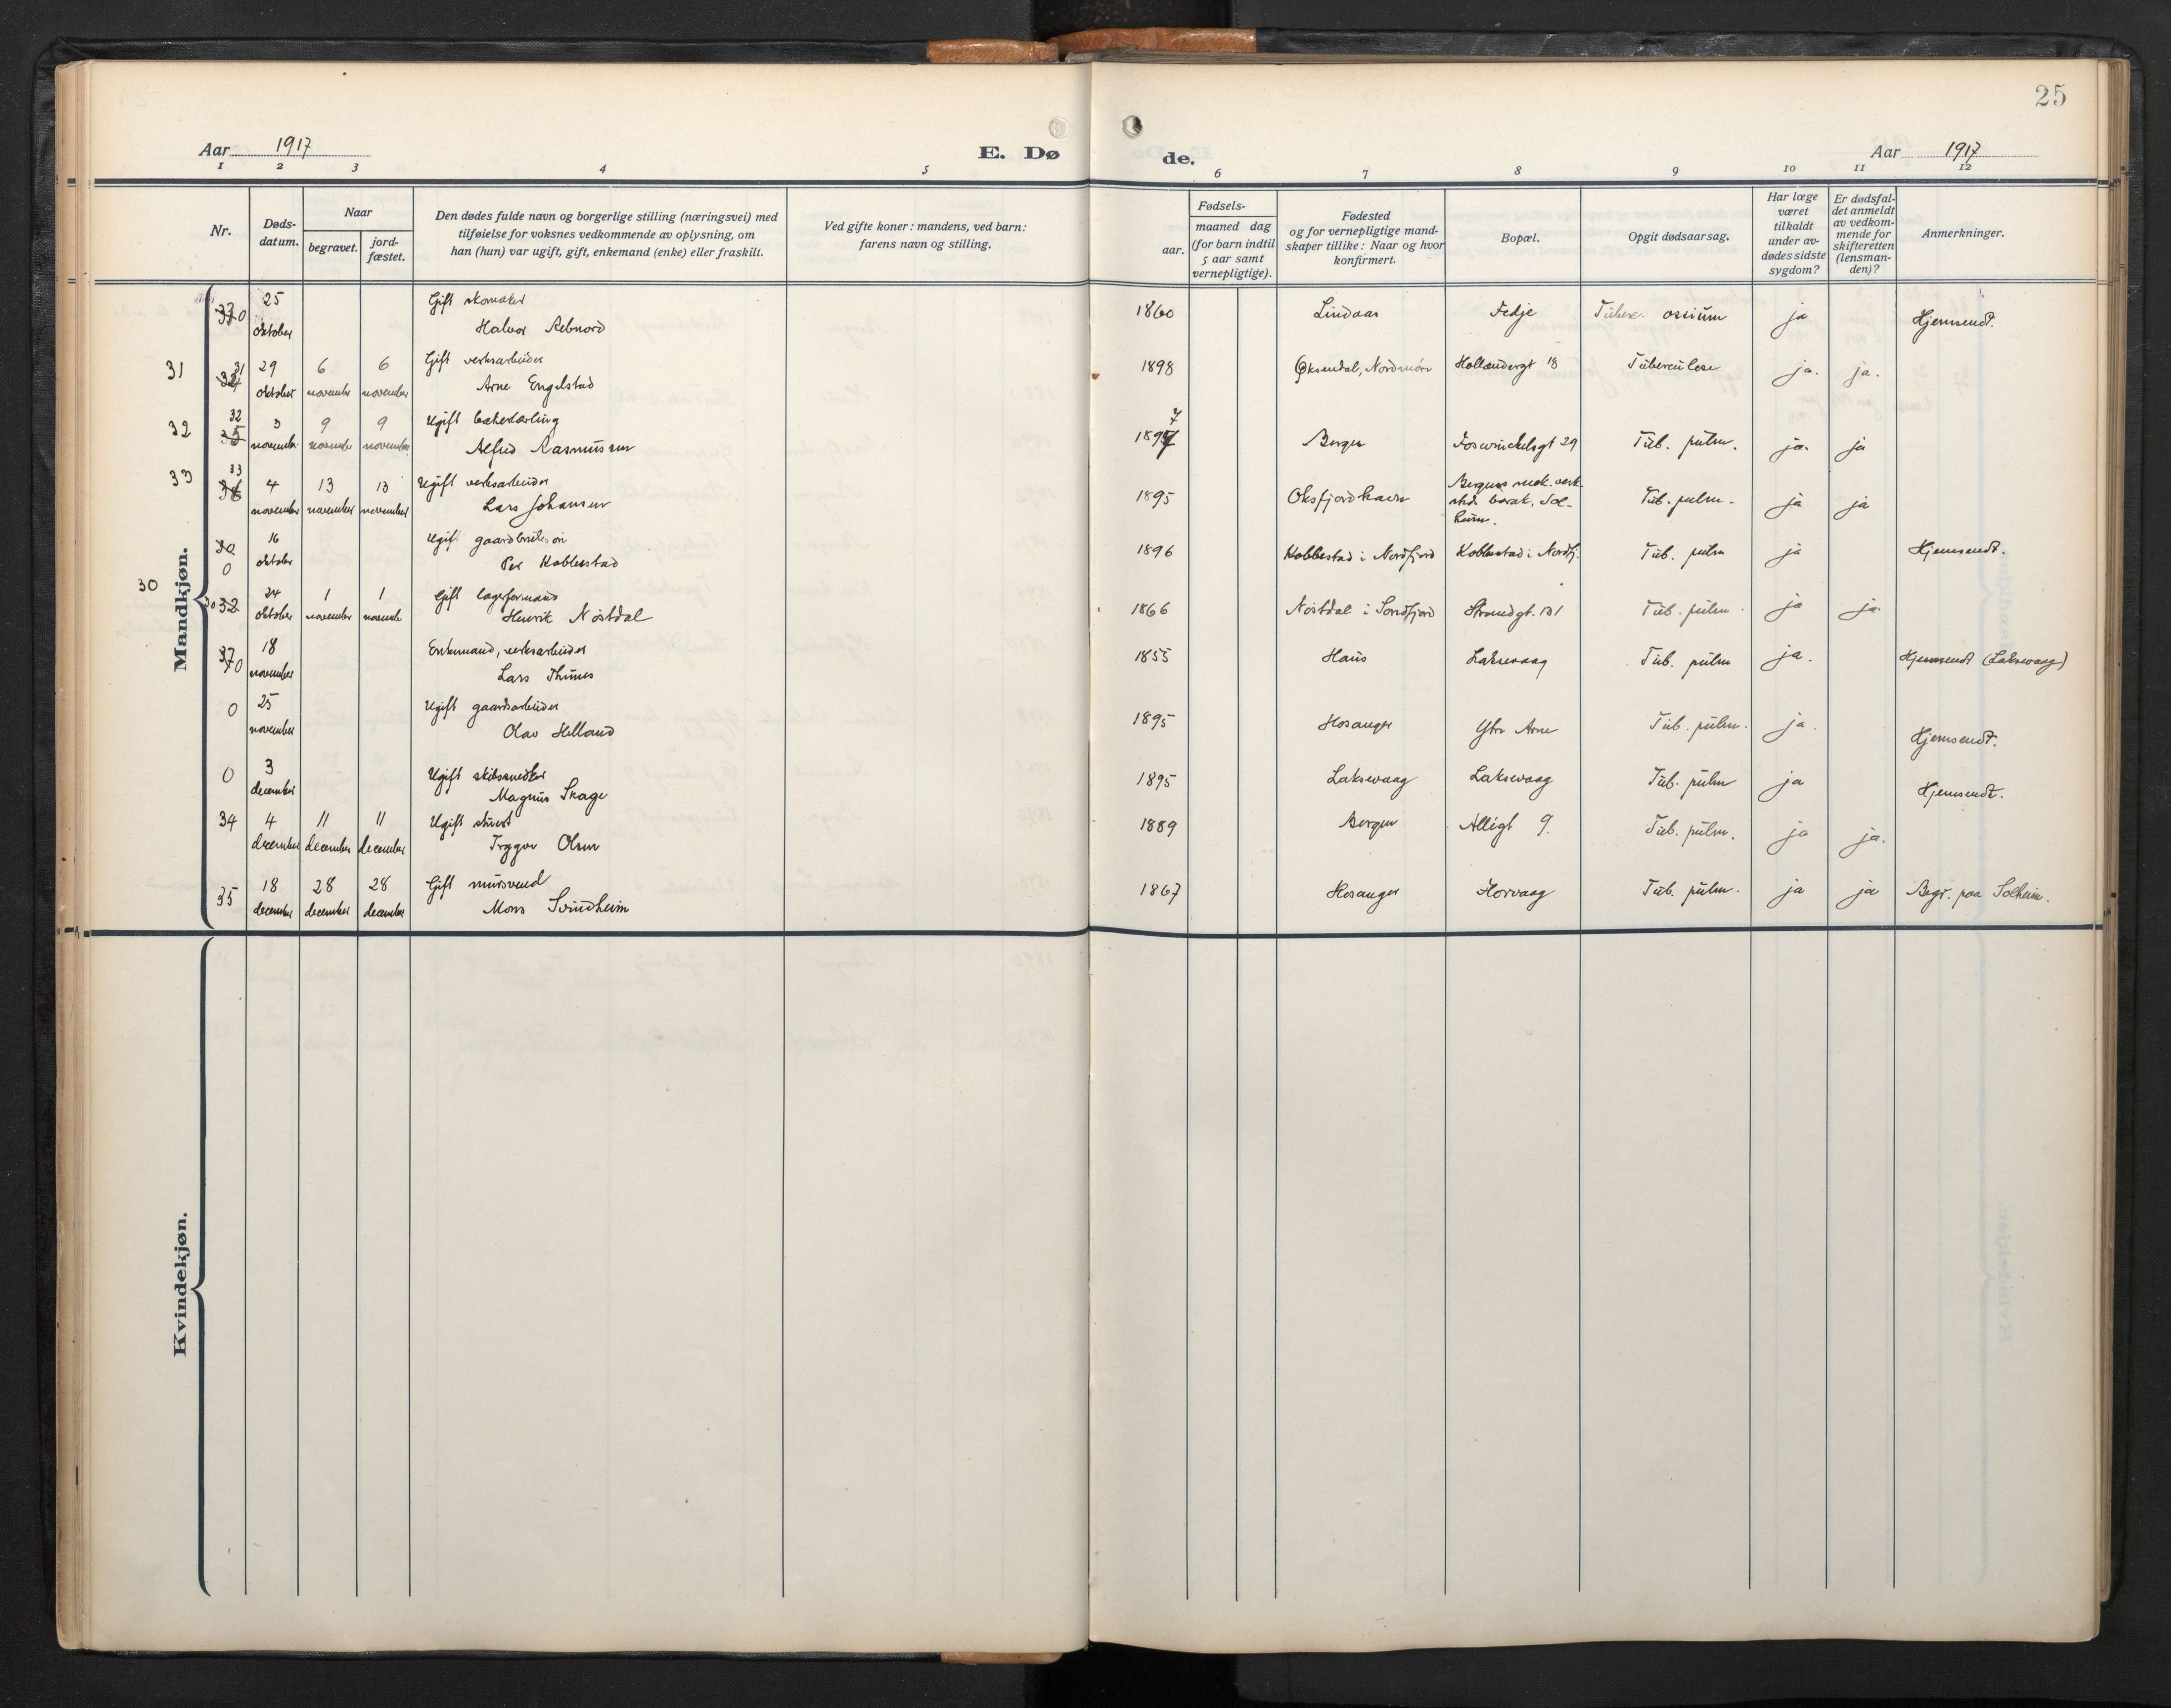 25
Aar 1917
E. Dø
de.
Aar 1917
1 2 3 4 5 6 7 8 9 10 11 12
Nr.
Døds-
datum.
Naar
begravet.
jord-
fæstet.
Den dødes fulde navn og borgerlige stilling (næringsvei) med
tilføielse for voksnes vedkommende av oplysning, om
han (hun) var ugift, gift, enkemand (enke) eller fraskilt.
Ved gifte koner: mandens, ved barn:
farens navn og stilling.
Fødsels-
aar.
maaned dag
(for barn indtil
5 aar samt
vernepligtige).
Fødested
og for vernepligtige mand-
skaper tillike: Naar og hvor
konfirmert.
Bopæl.
Opgit dødsaarsag.
Har læge
været
tilkaldt
under av-
dødes sidste
sygdom?
Er dødsfal-
det anmeldt
av vedkom-
mende for
skifteretten
(lensman-
den)?
Anmerkninger.
Mandkjøn.
25 Gift skomaker
oktober Halvor 1860 Lindaas Fedje Tuberc. ossium ja Hjemsendt.
31 29 6 6 Gift verksarbeider
oktober november november Arne Engelstad 1898 Øksendal, Nordmøre Hollendergt 18 Tuberculose ja. ja.
32 32 3 9 9 Ugift bakerlærling
november november november Alfred Rasmussen 1897 Bergen 29 Tub. pulm. ja. ja
33 33 4 13 13 Ugift verksarbeider
november november november Lars Johansen 1895 Oksfjordhavn Bergens mek. verk-
sted. barak, Sol-
heim. Tub. pulm. ja ja
30 0 16 Ugift
oktober Per Koblestad 1896 Koblestad i Nordfjord Koblestad i Nordfj. Tub. pulm ja Hjemsendt.
30 30 32 24 1 1 Gift lagerformand
oktober november novembe Henrik Nøstdal 1866 Nøstdal i Søndfjord Strandgt. 131 Tub. pulm. ja ja.
37 0 18 Enkemand, verksarbeider
november Lars Thunes 1855 Haus Laksevaag Tub. pulm ja. Hjemsendt (Laksevaag)
0 25 Ugift gaardsarbeider
november Olav Helland 1895 Hosanger Ytre Arne Tub. pulm. ja. Hjemsendt.
0 3 Ugift
december Magnus Skage 1895 Laksevaag Laksevaag Tub. pulm ja Hjemsendt.
34 4 11 11 Ugift stuert
december december december Trygve Olsen 1889 Bergen Alligt 9. Tub. pulm. ja ja.
35 18 28 28 Gift mursvend
december december december Mons Svindheim 1867 Hosanger Horvaag Tub. pulm. ja ja Begr. paa Solheim.
Kvindekjøn.